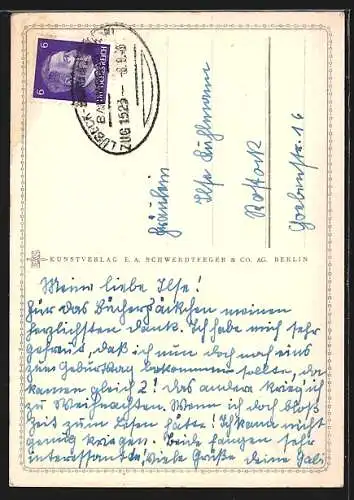 6 6
DEUTSCHES REICH
LÜBECK-
BAHNPOST
ZUG 1523
8.9.43
Fräulein
Ilse Kuhlmann
Rostock
Goebenstr. 16
KUNSTVERLAG E. A. SCHWERDTFEGER & CO. AG. BERLIN
Meine liebe Ilse!
Für das Bücherpäckchen meinen
herzlichsten Dank. Ich habe mich sehr
gefreut, daß ich nun doch noch eins
zum Geburtstag bekommen sollte, da
kamen gleich 2! Das andere krieg ich
zu Weihnachten. Wenn ich doch bloß
Zeit zum Lesen hätte! Ich kann nicht
genug kriegen. Beide fangen sehr
interessant an. Viele Grüße deine Gali